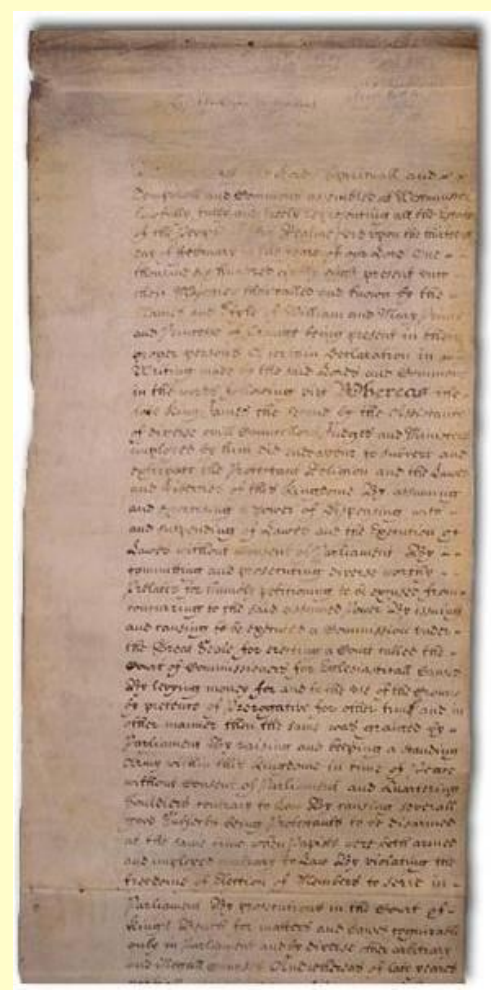 the Lords Spirituall and
Temporall and Commons assembled at Westminster
lawfully fully and freely representing all the Estates
of the People of this Realme did upon the thirteenth
day of February in the yeare of our Lord One
thousand six hundred eighty eight present unto
their Majesties then called and known by the
Names and Style of William and Mary Prince
and Princesse of Orange being present in their
proper persons A certain Declaration in
Writing made by the said Lords and Commons
in the words following viz Whereas the
late King James the Second by the Assistance
of diverse evill Councellors Judges and Ministers
imployed by him did endeavour to subvert and
extirpate the Protestant Religion and the Lawes
and Liberties of this Kingdome By assuming
and exercising a power of dispensing with
and suspending of Lawes and the Execution of
Lawes without Consent of Parliament By
committing and prosecuting diverse worthy
Prelates for humbly petitioning to be excused from
concurring to the said assumed Power By issuing
and causing to be executed a Commission under
the Great Seale for erecting a Court called the
Court of Commissioners for Ecclesiasticall Causes
By levying money for and to the use of the Crowne
by pretence of Prerogative for other time and in
other manner then the same was granted by
Parliament By raising and keeping a standing
Army within this Kingdome in time of Peace
without Consent of Parliament and Quartering
Souldiers contrary to Law By causing severall
good Subjects being Protestants to be disarmed
at the same time when Papists were both armed
and imployed contrary to Law By violating the
freedome of Election of Members to serve in
Parliament By prosecutions in the Court of
Kings Bench for matters and causes cognizable
only in Parliament and by diverse other arbitrary
and illegall courses And whereas of late yeares